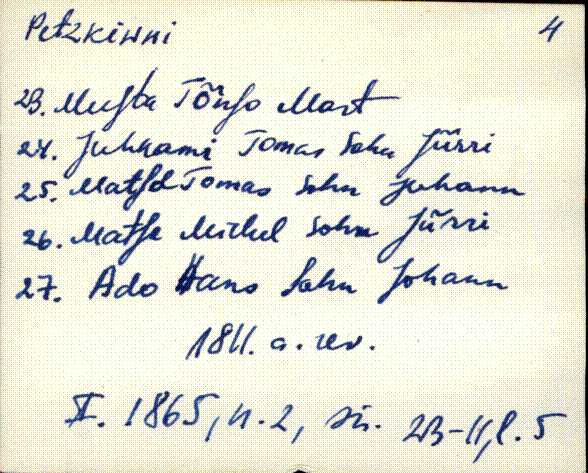 Petzkiwni 4
23. Musta Tõnso Mart
24. Juhkami Tomas Sohn Jürri
25. Matso Tomas Sohn Juhann
26. Matse Michel Sohn Jürri
27. Ado Hans Sohn Johann
1811. a. rev.
F. 1865, n. 2, sü. 23-11, l. 5